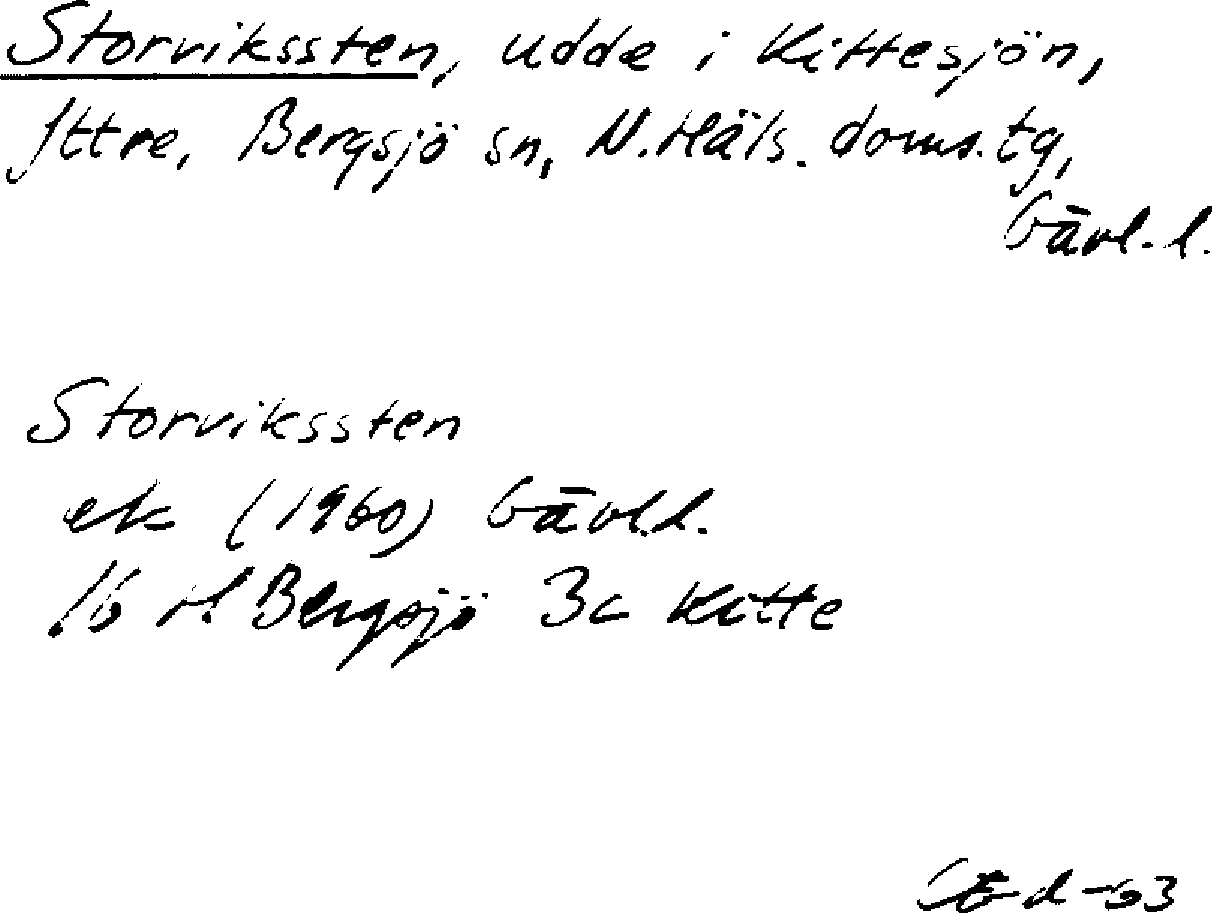 Storvikssten, udde i Kittesjön,
Ittre, Bergsjö sn, N. Häls. doms. tg,
Gävl. l.
Storvikssten
ek (1960) Gävl.l.
16 H Bergsjö 3c Kitte
-63